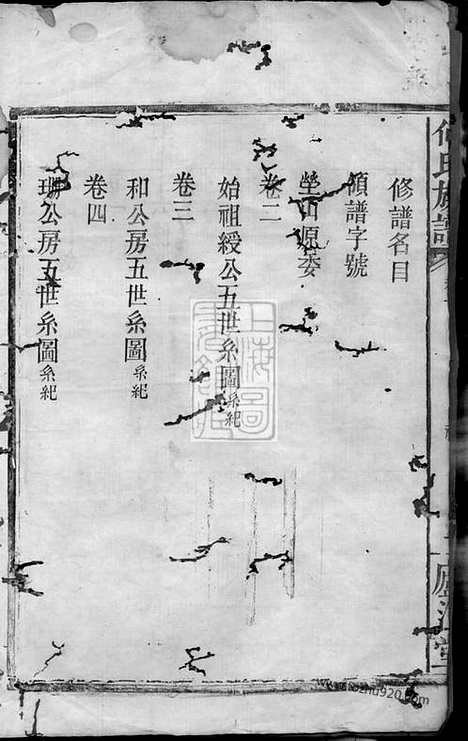 修譜名目
領譜字號
塋山原委
卷二
始祖綬公五世系圖系紀
卷三
和公房五世系圖系紀
卷四
公房五世系圖系紀
何氏族譜
廬江堂
上海圖書館藏